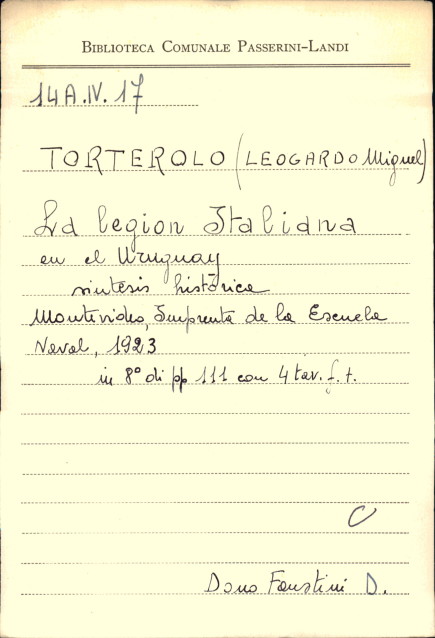 BIBLIOTECA COMUNALE PASSERINI-LANDI
14A.IV.17
TORTEROLO (LEOGARDO Miguel)
La legion Italiana
en el Uruguay
sintesis histórica
Montevideo, Imprenta de la Escuela
Naval, 1923
in 8° di pp 111 con 4 tav. f. t.
C
Dono Faustini D.